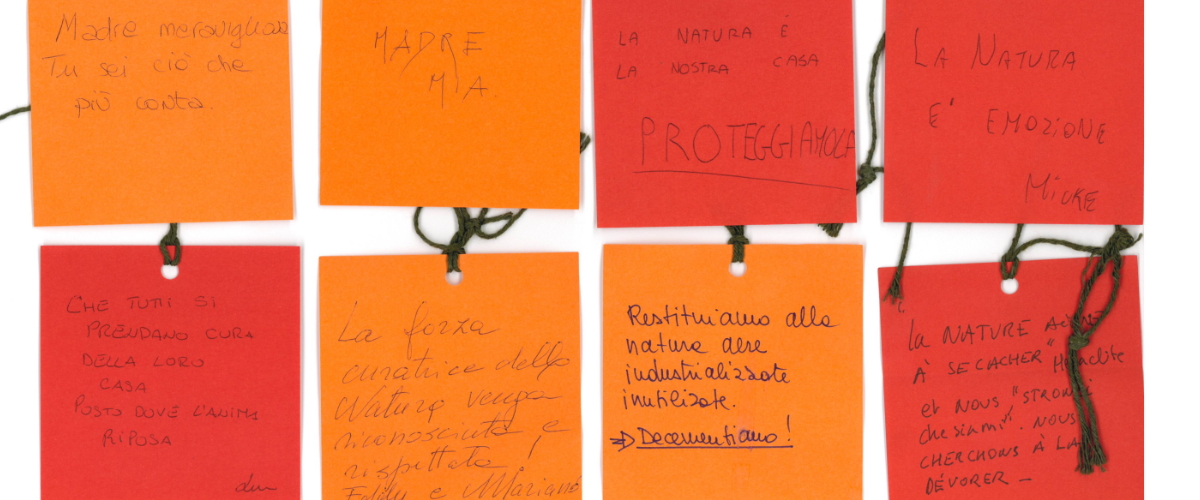 Madre meravigliosa
Tu sei ciò che
più conta.
MADRE
MIA
LA NATURA È
LA NOSTRA CASA
PROTEGGIAMOLA
LA NATURA
E' EMOZIONE
MICKE
CHE TUTTI SI
PRENDANO CURA
DELLA LORO
CASA
POSTO DOVE L'ANIMA
RIPOSA
La forza
curatrice della
Natura venga
riconosciuta e
rispettata!
Eddy e Mariano
Restituiamo alla
natura aree
industrializzate
inutilizate.
⇒ Decementiamo!
la NATURE AIME
À SE CACHER" Héraclite
et NOUS "STRONZI
che siamo". NOUS
CHERCHONS À LA
DÉVORER –